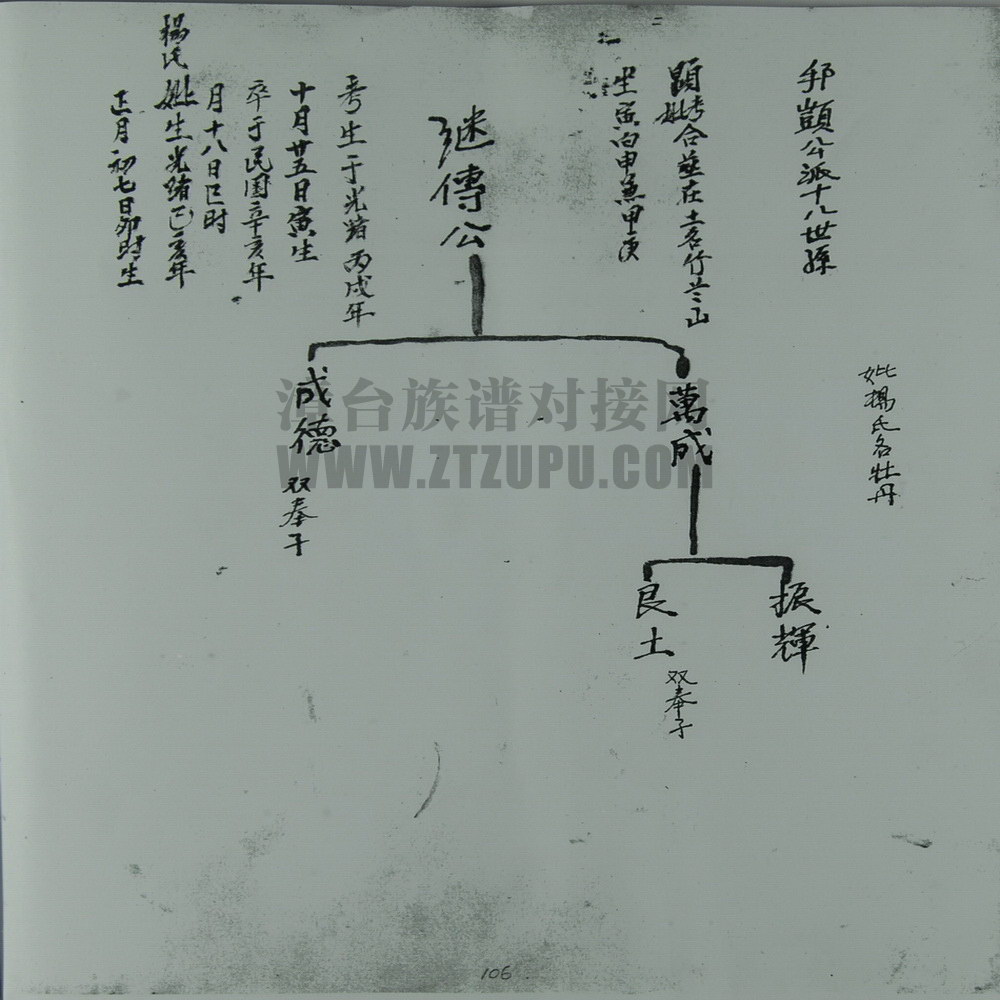 公派十八世孫
妣楊氏名牡丹
顯考妣合葬在土名竹兰山
坐寅向申兼甲庚
继傳公
考生于光緒丙戌年
十月廿五日寅生
卒于民国辛亥年
月十八日巳时
楊氏妣生光緒己亥年
正月初七日卯时生
萬成
成德
双奉子
振輝
良土
双奉子
漳台族谱对接网
WWW.ZTZUPU.COM
106